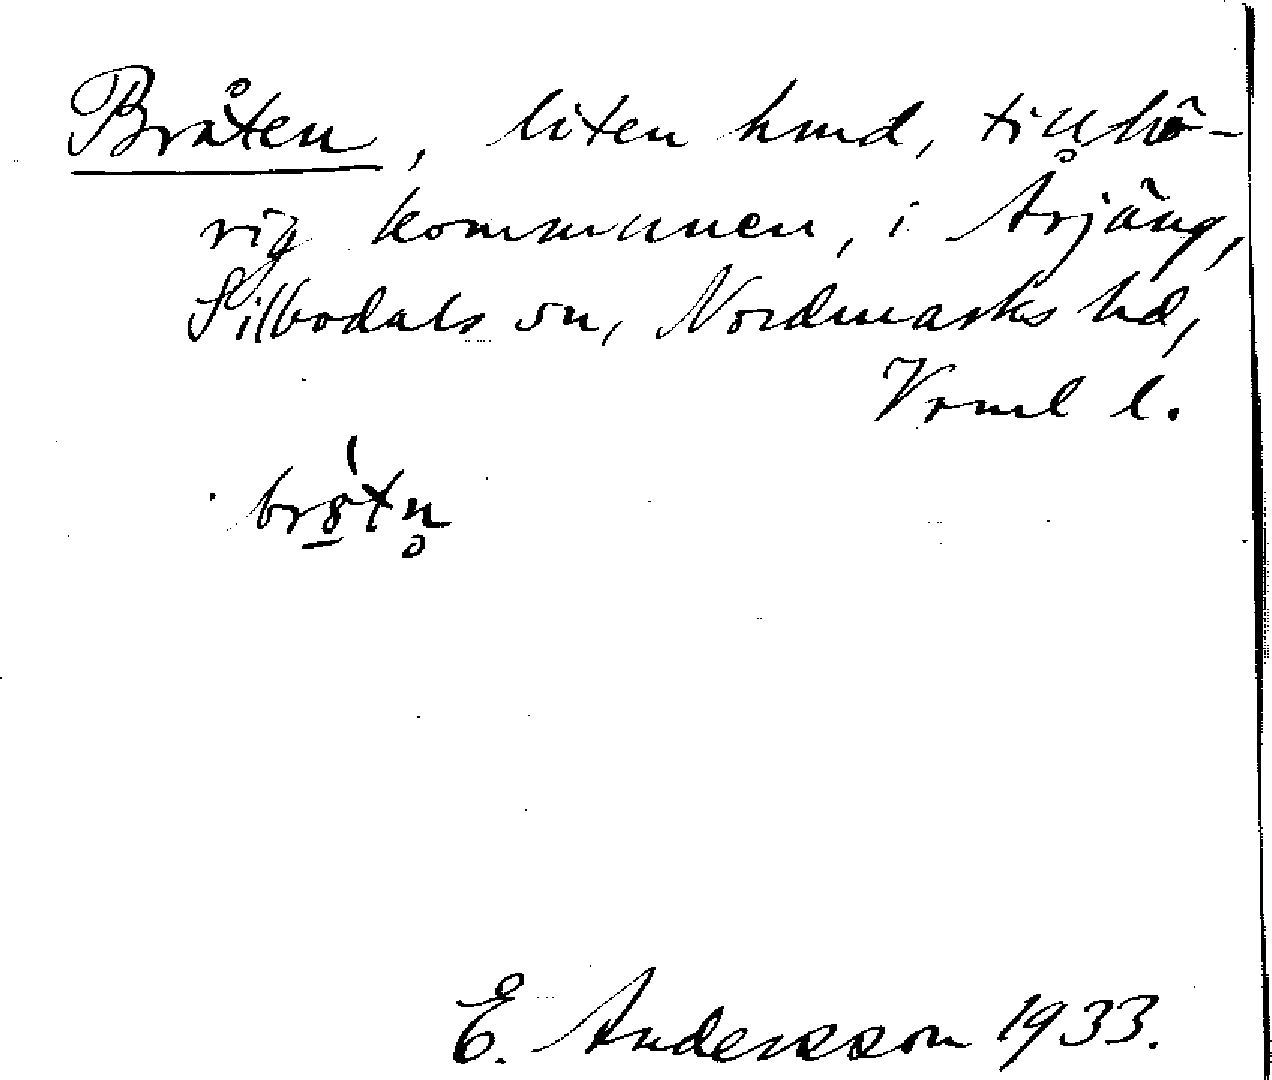 Bråten, liten hmd, tillhö-
rig kommunen, i Årjäng,
Silbodals sn, Nordmarks hd,
Vrml l.
E. Andersson 1933.